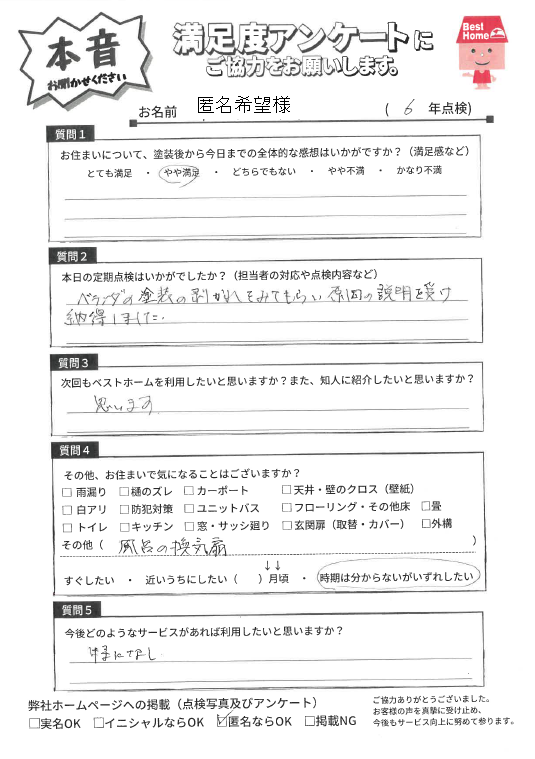 本音
お聞かせください
満足度アンケートに
ご協力をお願いします。
Best Home
お名前 匿名希望様 ( 6 年点検)
質問1
お住まいについて、塗装後から今日までの全体的な感想はいかがですか?(満足感など)
とても満足 ・ やや満足 ・ どちらでもない ・ やや不満 ・ かなり不満
質問2
本日の定期点検はいかがでしたか?(担当者の対応や点検内容など)
ベランダの塗装の剥がれをみてもらい原因の説明を受け
納得しました。
質問3
次回もベストホームを利用したいと思いますか?また、知人に紹介したいと思いますか?
思います
質問4
その他、お住まいで気になることはございますか?
□ 雨漏り □ 樋のズレ □ カーポート □ 天井・壁のクロス(壁紙)
□ 白アリ □ 防犯対策 □ ユニットバス □ フローリング・その他床 □畳
□ トイレ □ キッチン □ 窓・サッシ廻り □ 玄関扉(取替・カバー) □外構
その他( 風呂の換気扇 )
↓↓
すぐしたい ・ 近いうちにしたい( )月頃 ・ 時期は分からないがいずれしたい
質問5
今後どのようなサービスがあれば利用したいと思いますか?
特になし
弊社ホームページへの掲載(点検写真及びアンケート)
□実名OK □イニシャルならOK ☑匿名ならOK □掲載NG
ご協力ありがとうございました。
お客様の声を真摯に受け止め、
今後もサービス向上に努めて参ります。